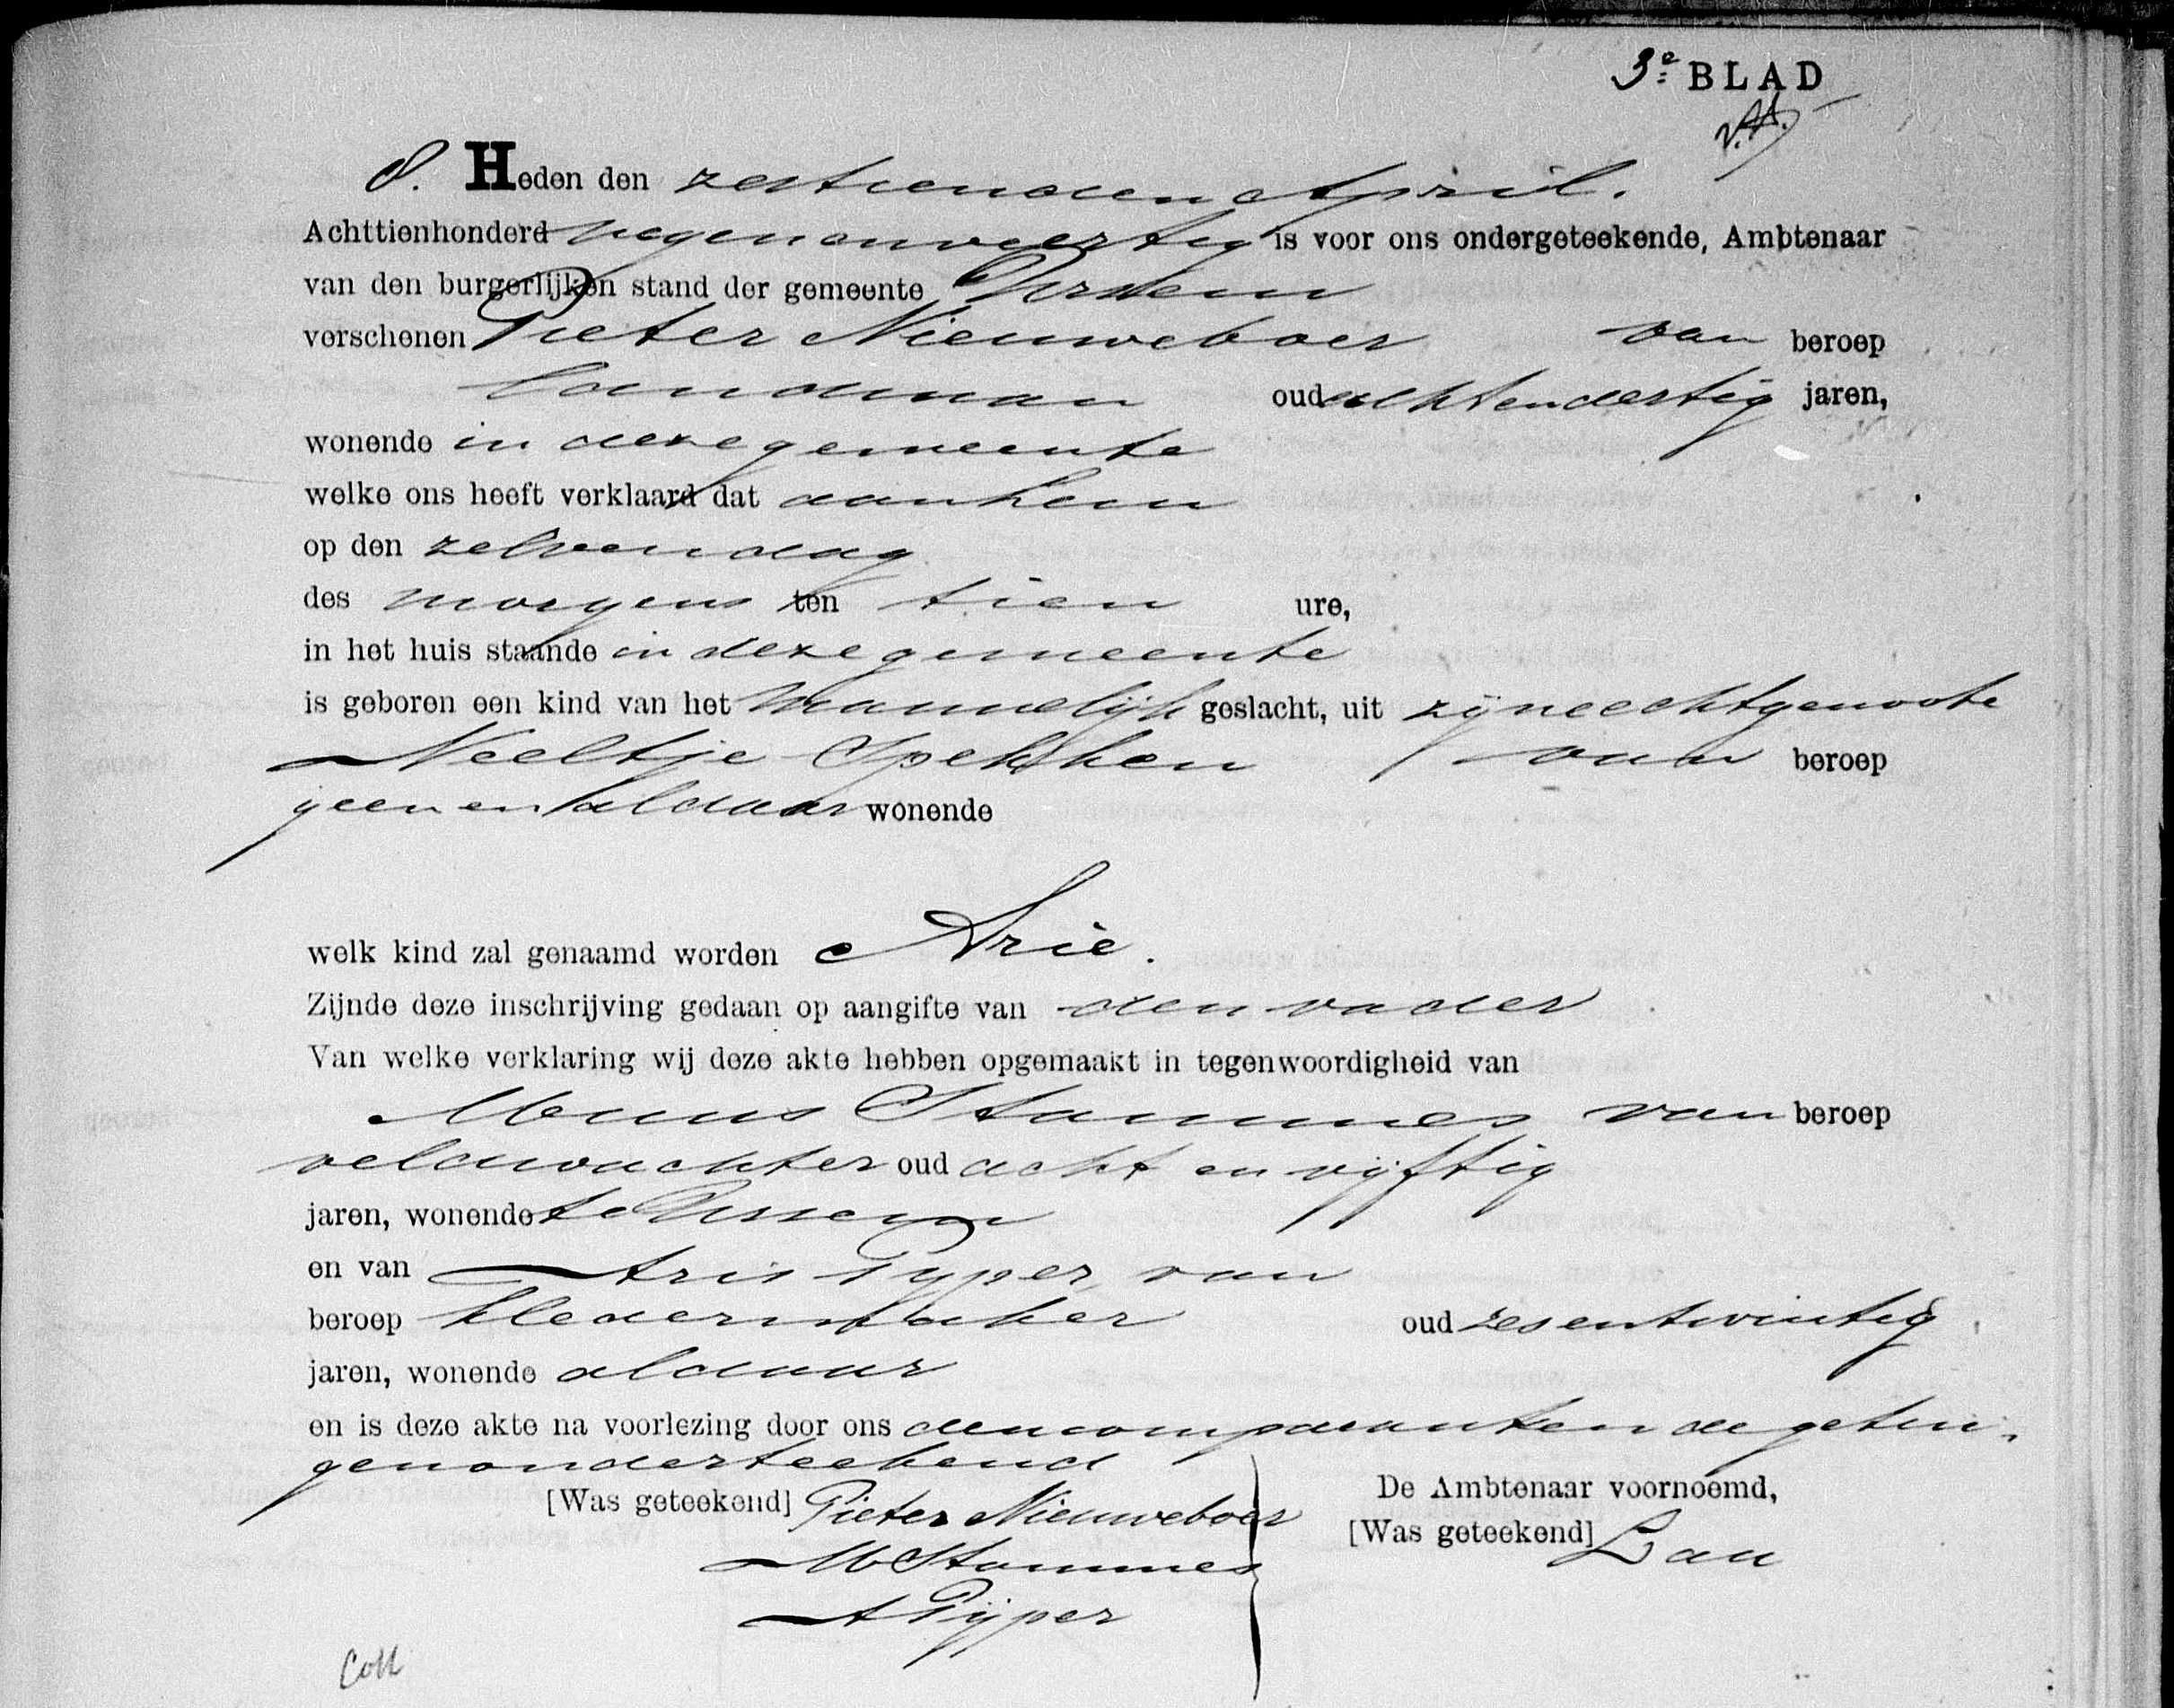 3e BLAD
8. Heden den zestienden April.
Achttienhonderd negenenveertig is voor ons ondergeteekende, Ambtenaar
van den burgerlijken stand der gemeente Ursem
verschenen Pieter Nieuweboer van beroep
landman oud achtendertig jaren,
wonende in deze gemeente
welke ons heeft verklaard dat aan hem
op den zelven dag
des morgens ten tien ure,
in het huis staande in deze gemeente
is geboren een kind van het mannelijk geslacht, uit zijne echtgenoote
Neeltje Spekken van beroep
geen en aldaar wonende
welk kind zal genaamd worden Arie.
Zijnde deze inschrijving gedaan op aangifte van den vader
Van welke verklaring wij deze akte hebben opgemaakt in tegenwoordigheid van
Stammes van beroep
veldwachter oud acht en vijftig
jaren, wonende te Ursem
en van Aris Pyper, van
beroep kledermaker oud zesentwintig
jaren, wonende aldaar
en is deze akte na voorlezing door ons den comparanten de getui-
gen onderteekend
[Was geteekend] Pieter Nieuweboer
De Ambtenaar voornoemd,
M Stammes
[Was geteekend] Lau
A Pijper
Coll